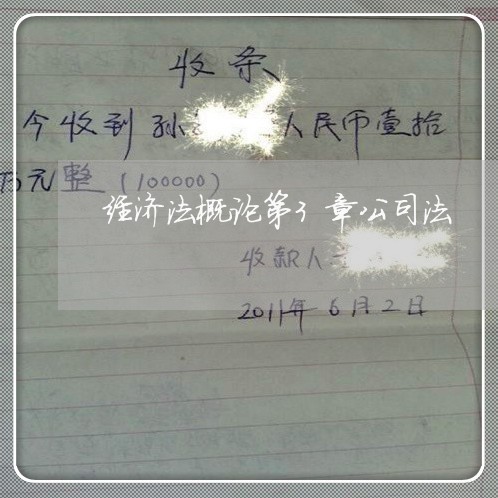 收条
今收到孙 人民币壹拾
万元整(100000)
经济法概论第3章公司法
收款人
2011年6月2日